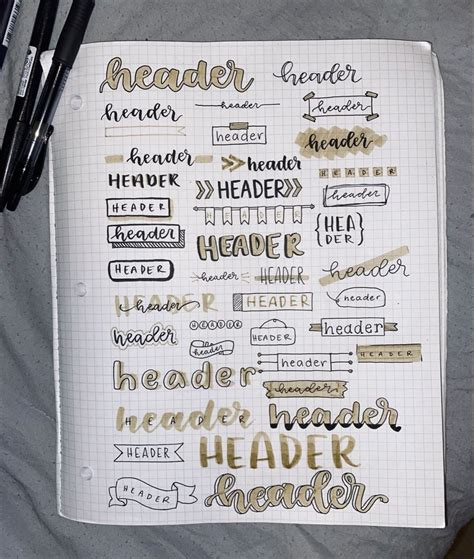 header
header
header
header
header
header
header
header
header
HEADER
HEADER
HEADER
header
HEADER
HEADER
HEA
DER
header
HEADER
header
HEADER
header
HEADER
HEADER
header
HEADER
header
header
HEADER
HEADER
header
header
header
HEADER
header
header
header
HEADER
header
HEADER
HEADER
HEADER
header